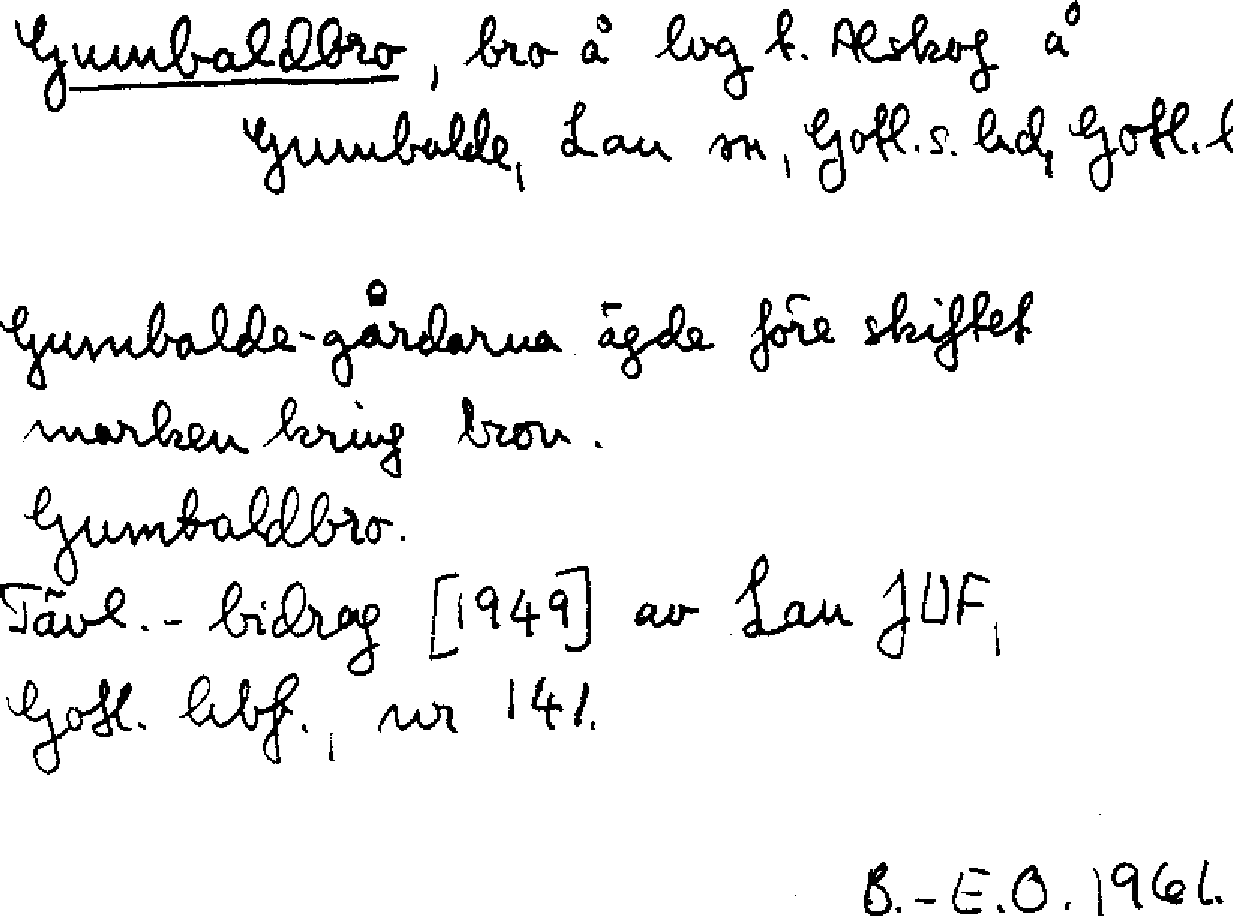 Gumbaldbro, bro å lvg t. Alskog å
Gumbalde, Lau sn, Gotl. s. hd, Gotl. l
Gumbalde-gårdarna ägde före skiftet
marken kring bron.
Gumbaldbro.
Tävl.-bidrag [1949] av Lau JUF,
Gotl. hbf., nr 141.
B.-E.O. 1961.